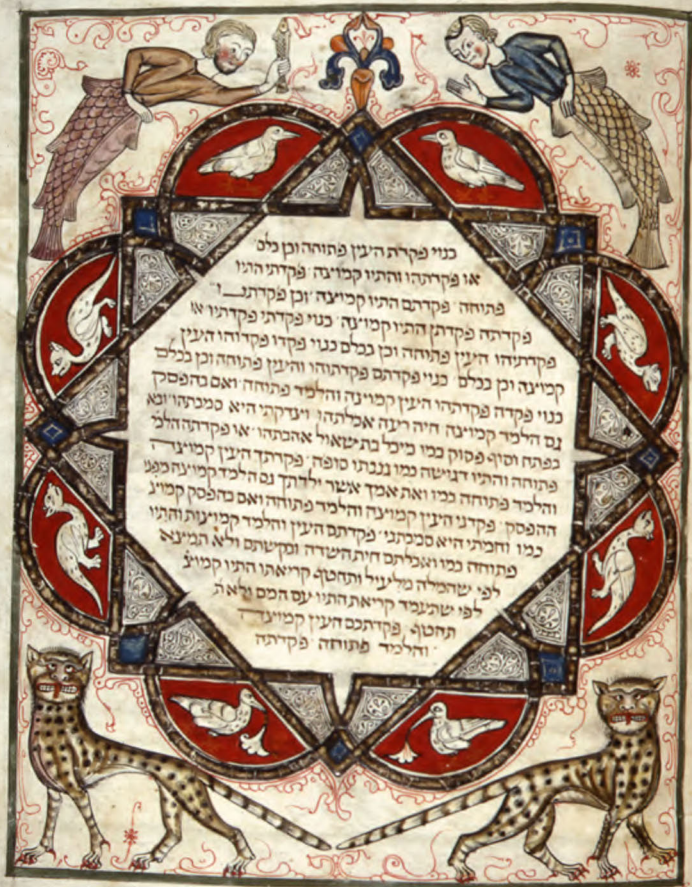 כנוי פקדת העין פתוחה וכן כלם
או פקדתהו והתיו קמוצה פקדתי התיו
פתוחה פקדתם התיו קמוצה וכן פקדתי ו
פקדתה פקדתן התיו קמוצה כנוי פקדתי פקדתיו או
פקדתיהו העין פתוחה וכן בכלם כנוי פקדו פקדוהו העין
קמוצה וכן בכלם כנוי פקדתם פקדתוהו והעין פתוחה וכן בכלם
כנוי פקדה פקדתהו העין קמוצה והלמד פתוחה ואם בהפסק
גם הלמד קמוצה חיה רעה אכלתהו וצדקתי היא סמכתהו ובא
בפתח וסוף פסוק כמו מיכל בת שאול אהבתהו או פקדתה הלמד
פתוחה והתיו דגושה כמו גנבתו סופה פקדתך העין קמוצה
והלמד פתוחה כמו ואת אמך אשר ילדתך גם הלמד קמוצה מפני
ההפסק פקדתני העין קמוצה והלמד פתוחה ואם בהפסק קמוצ
כמו וחמתי היא סמכתני פקדתם העין והלמד קמוצות והתיו
פתוחה כמו ואכלתם חית השדה ובקשתם ולא תמצא
לפי שהמלה מלעיל ותחטף קריאתו התיו קמוצ
לפי שתעמד קריאת התיו עם המם ולא ת
תחטף פקדתכם העין קמוצה
והלמד פתוחה פקדתה